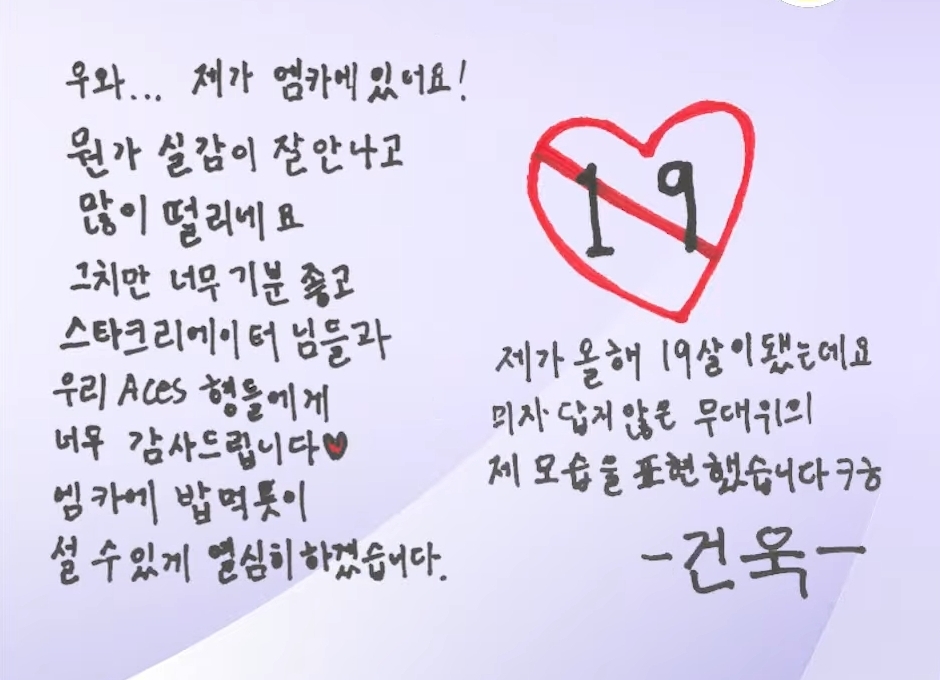 우와... 제가 엠카에 있어요!
뭔가 실감이 잘 안나고
많이 떨리네요
그치만 너무 기분 좋고
스타크리에이터 님들과
우리 Aces 형들에게
너무 감사드립니다♥
엠카에 밥먹듯이
설 수 있게 열심히 하겠습니다.
19
제가 올해 19살이 됐는데요
미자 답지 않은 무대위의
제 모습을 표현했습니다 ㅋㅎ
-건욱-